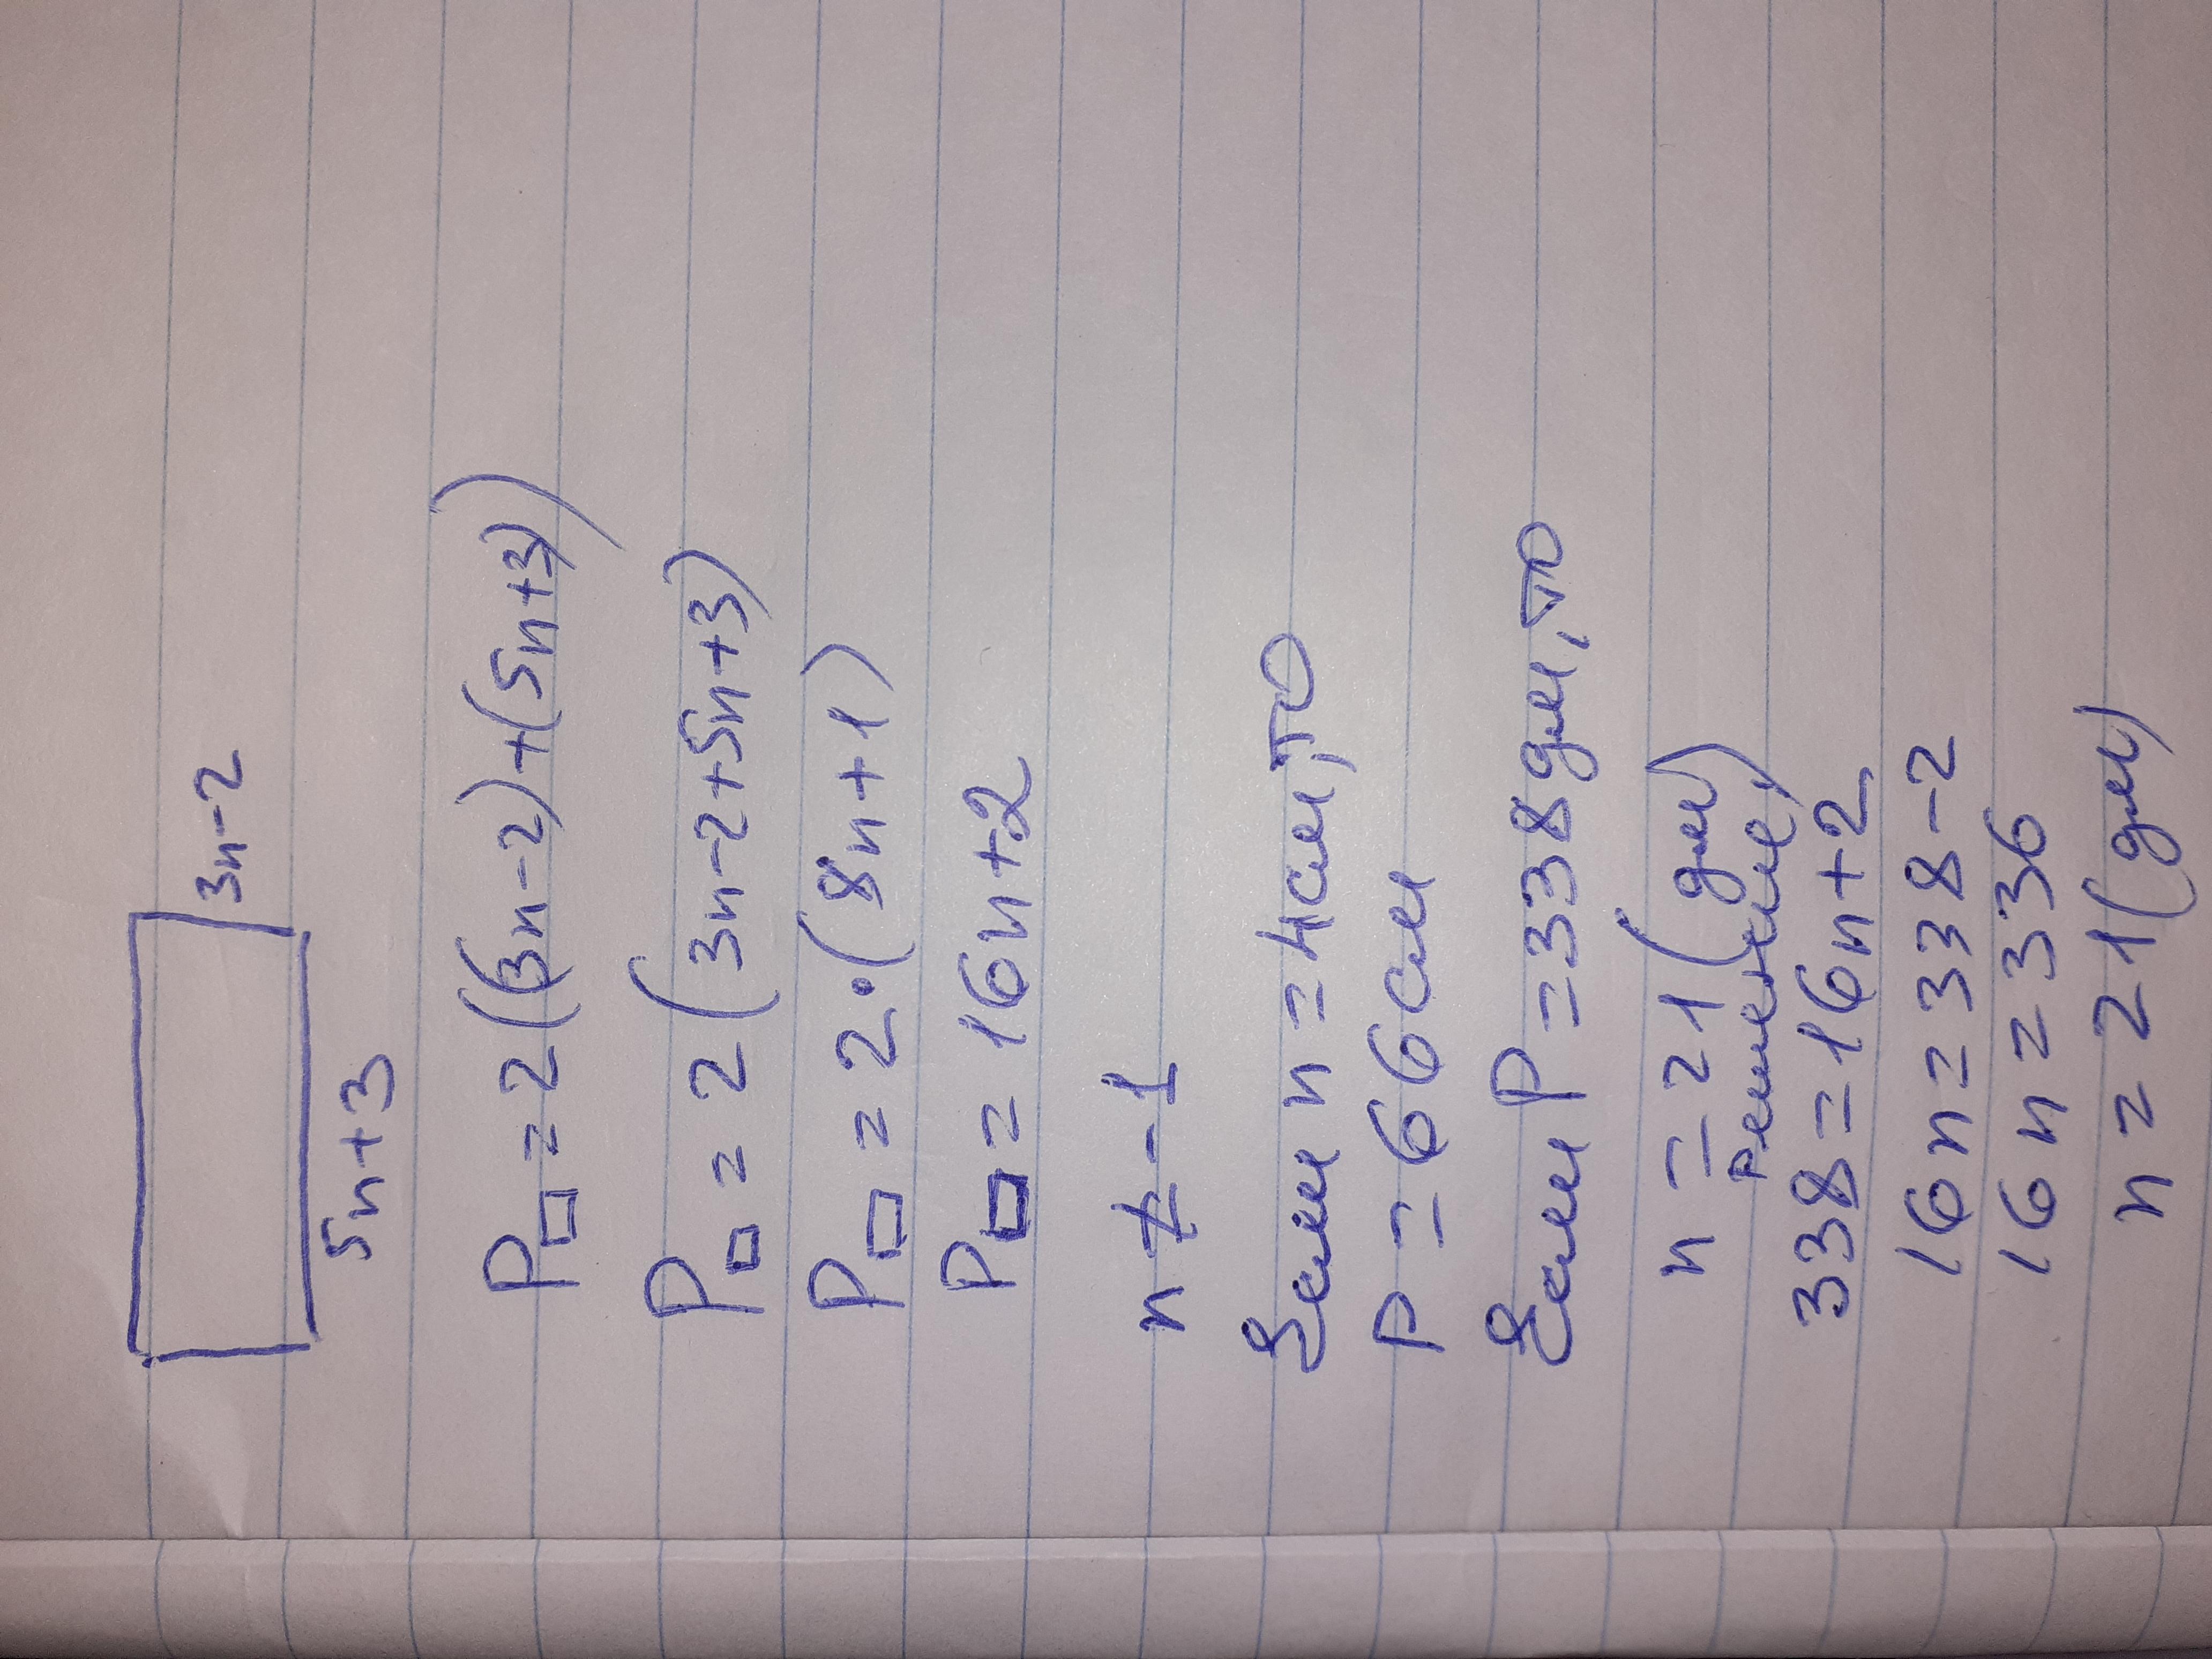 3n-2
5n+3
P▭=2((3n-2)+(5n+3))
P▭=2(3n-2+5n+3)
P▭=2·(8n+1)
P▭=16n+2
n≠-1
Если n=4см, то
P=66см
Если P=338дм, то
n=21(дм)
Решение,
338=16n+2
16n=338-2
16n=336
n=21(дм)